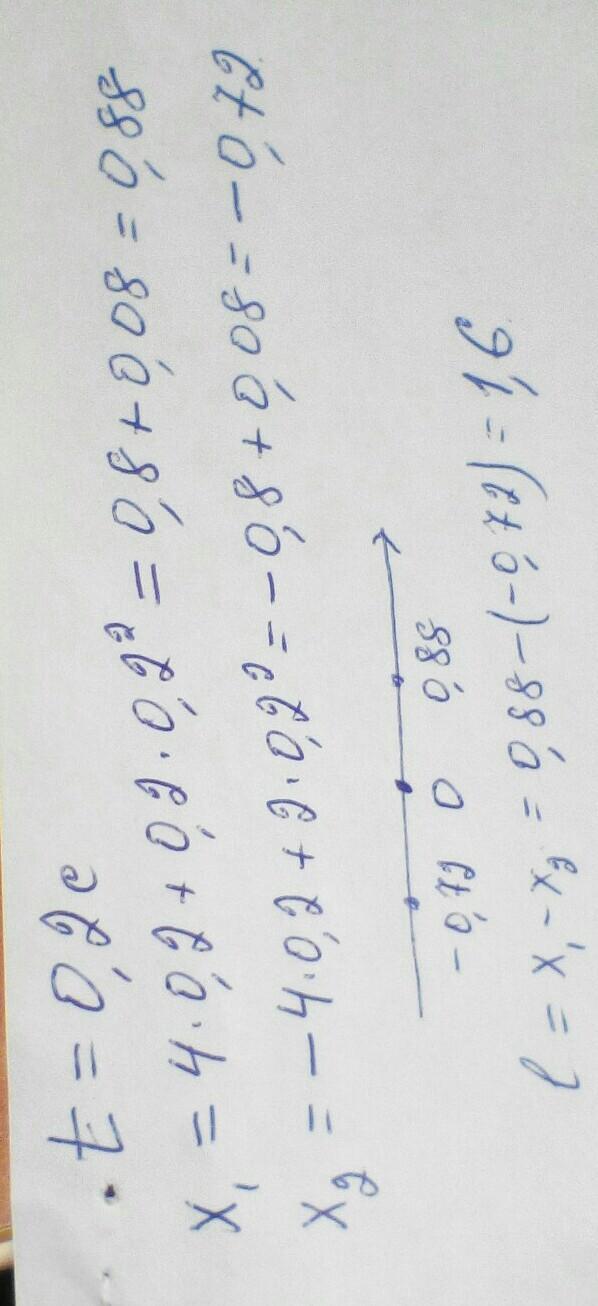 7 = 0,2 c
x₁ = 4·0,2 + 0,2·0,2² = 0,8 + 0,08 = 0,88
x₂ = -4·0,2 + 2·0,2² = -0,8 + 0,08 = -0,72
-0,72 0 0,88
l = x₁ - x₂ = 0,88 - (-0,72) = 1,6